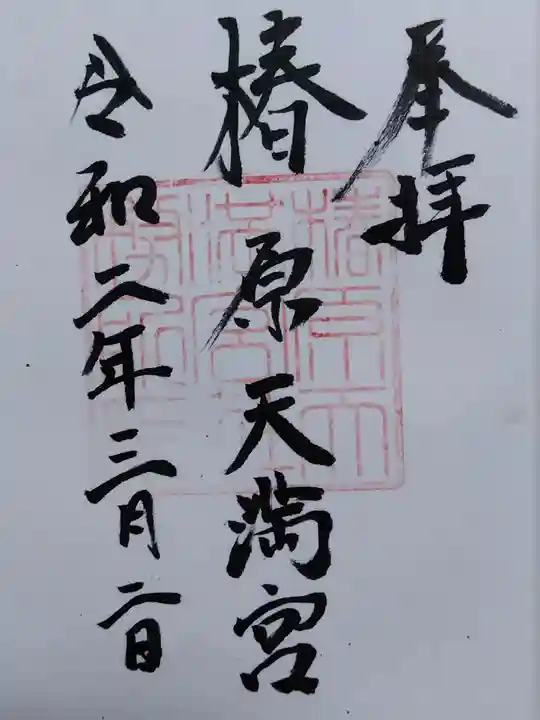 奉拝
椿原天満宮
令和二年三月二日